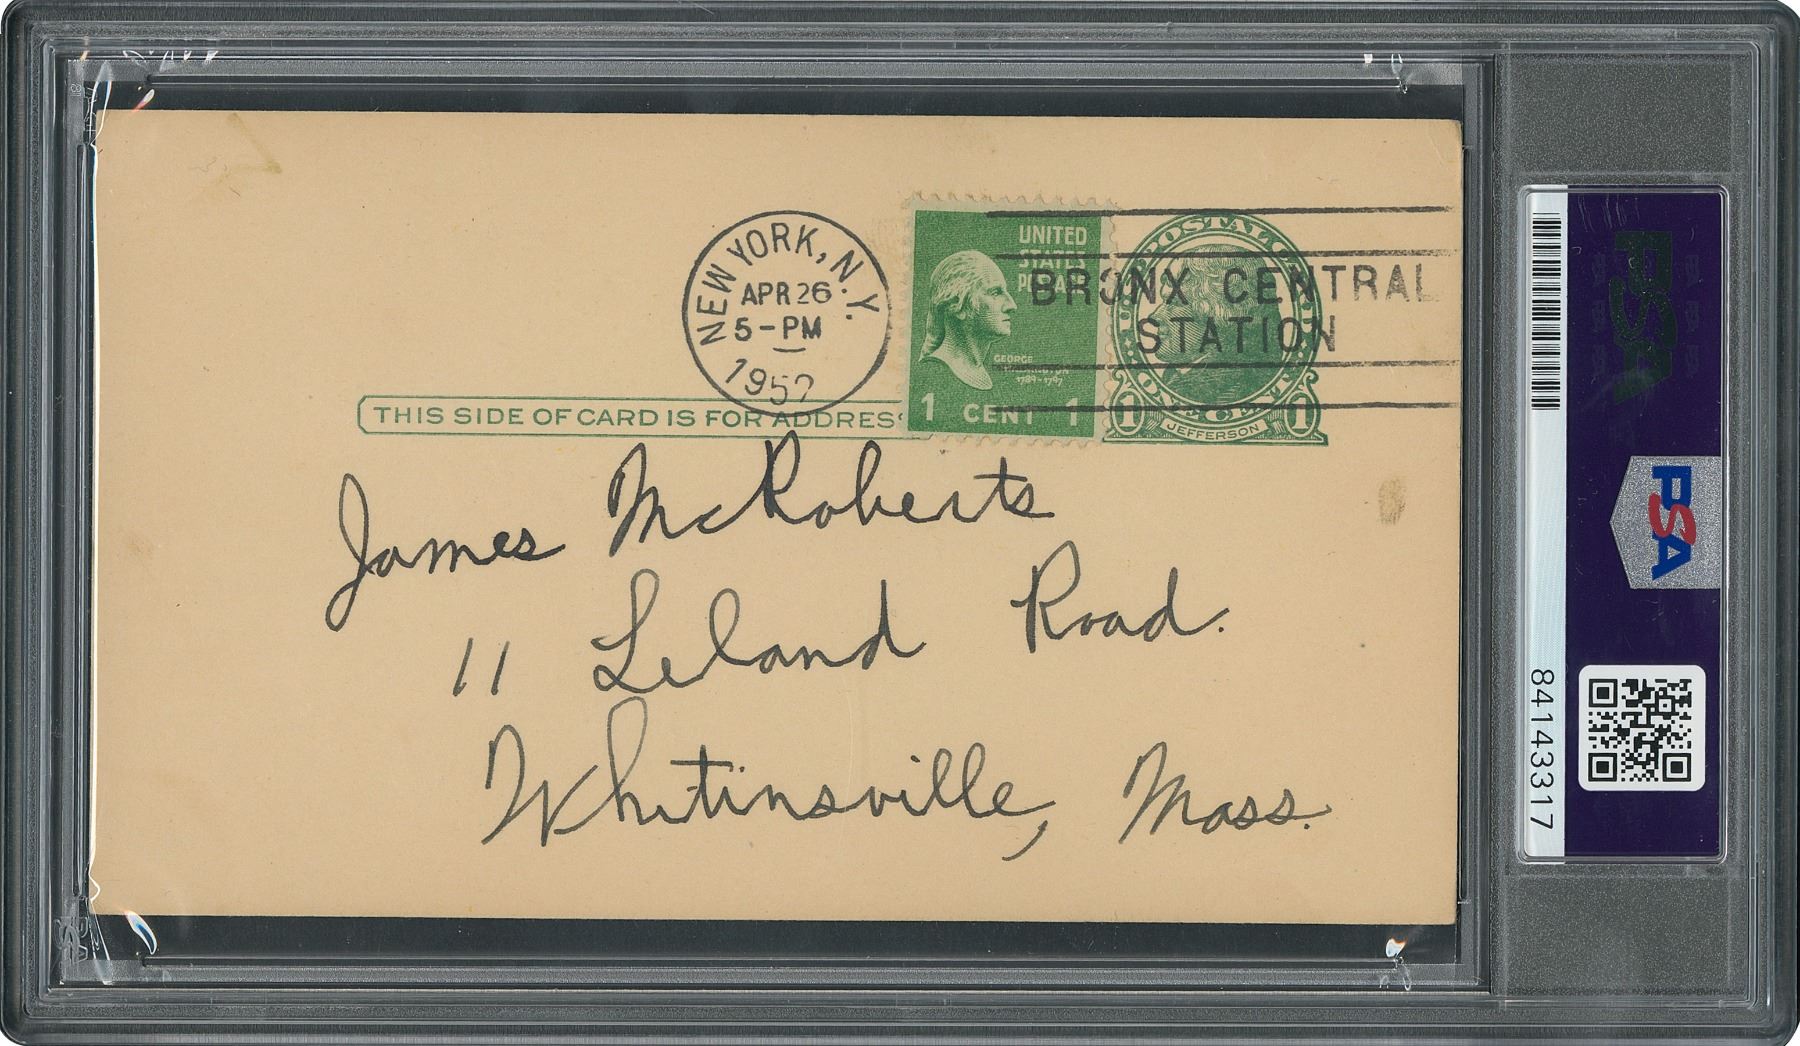 NEW YORK, N.Y.
APR 26
5-PM
1952
UNITED
STATES
GEORGE
1789-1797
1 CENT 1
BRONX CENTRAL
STATION
ONE CENT
1 JEFFERSON 1
THIS SIDE OF CARD IS FOR ADDRES
James McRoberts
11 Leland Road.
Whitinsville, Mass.
PSA
PSA
84143317